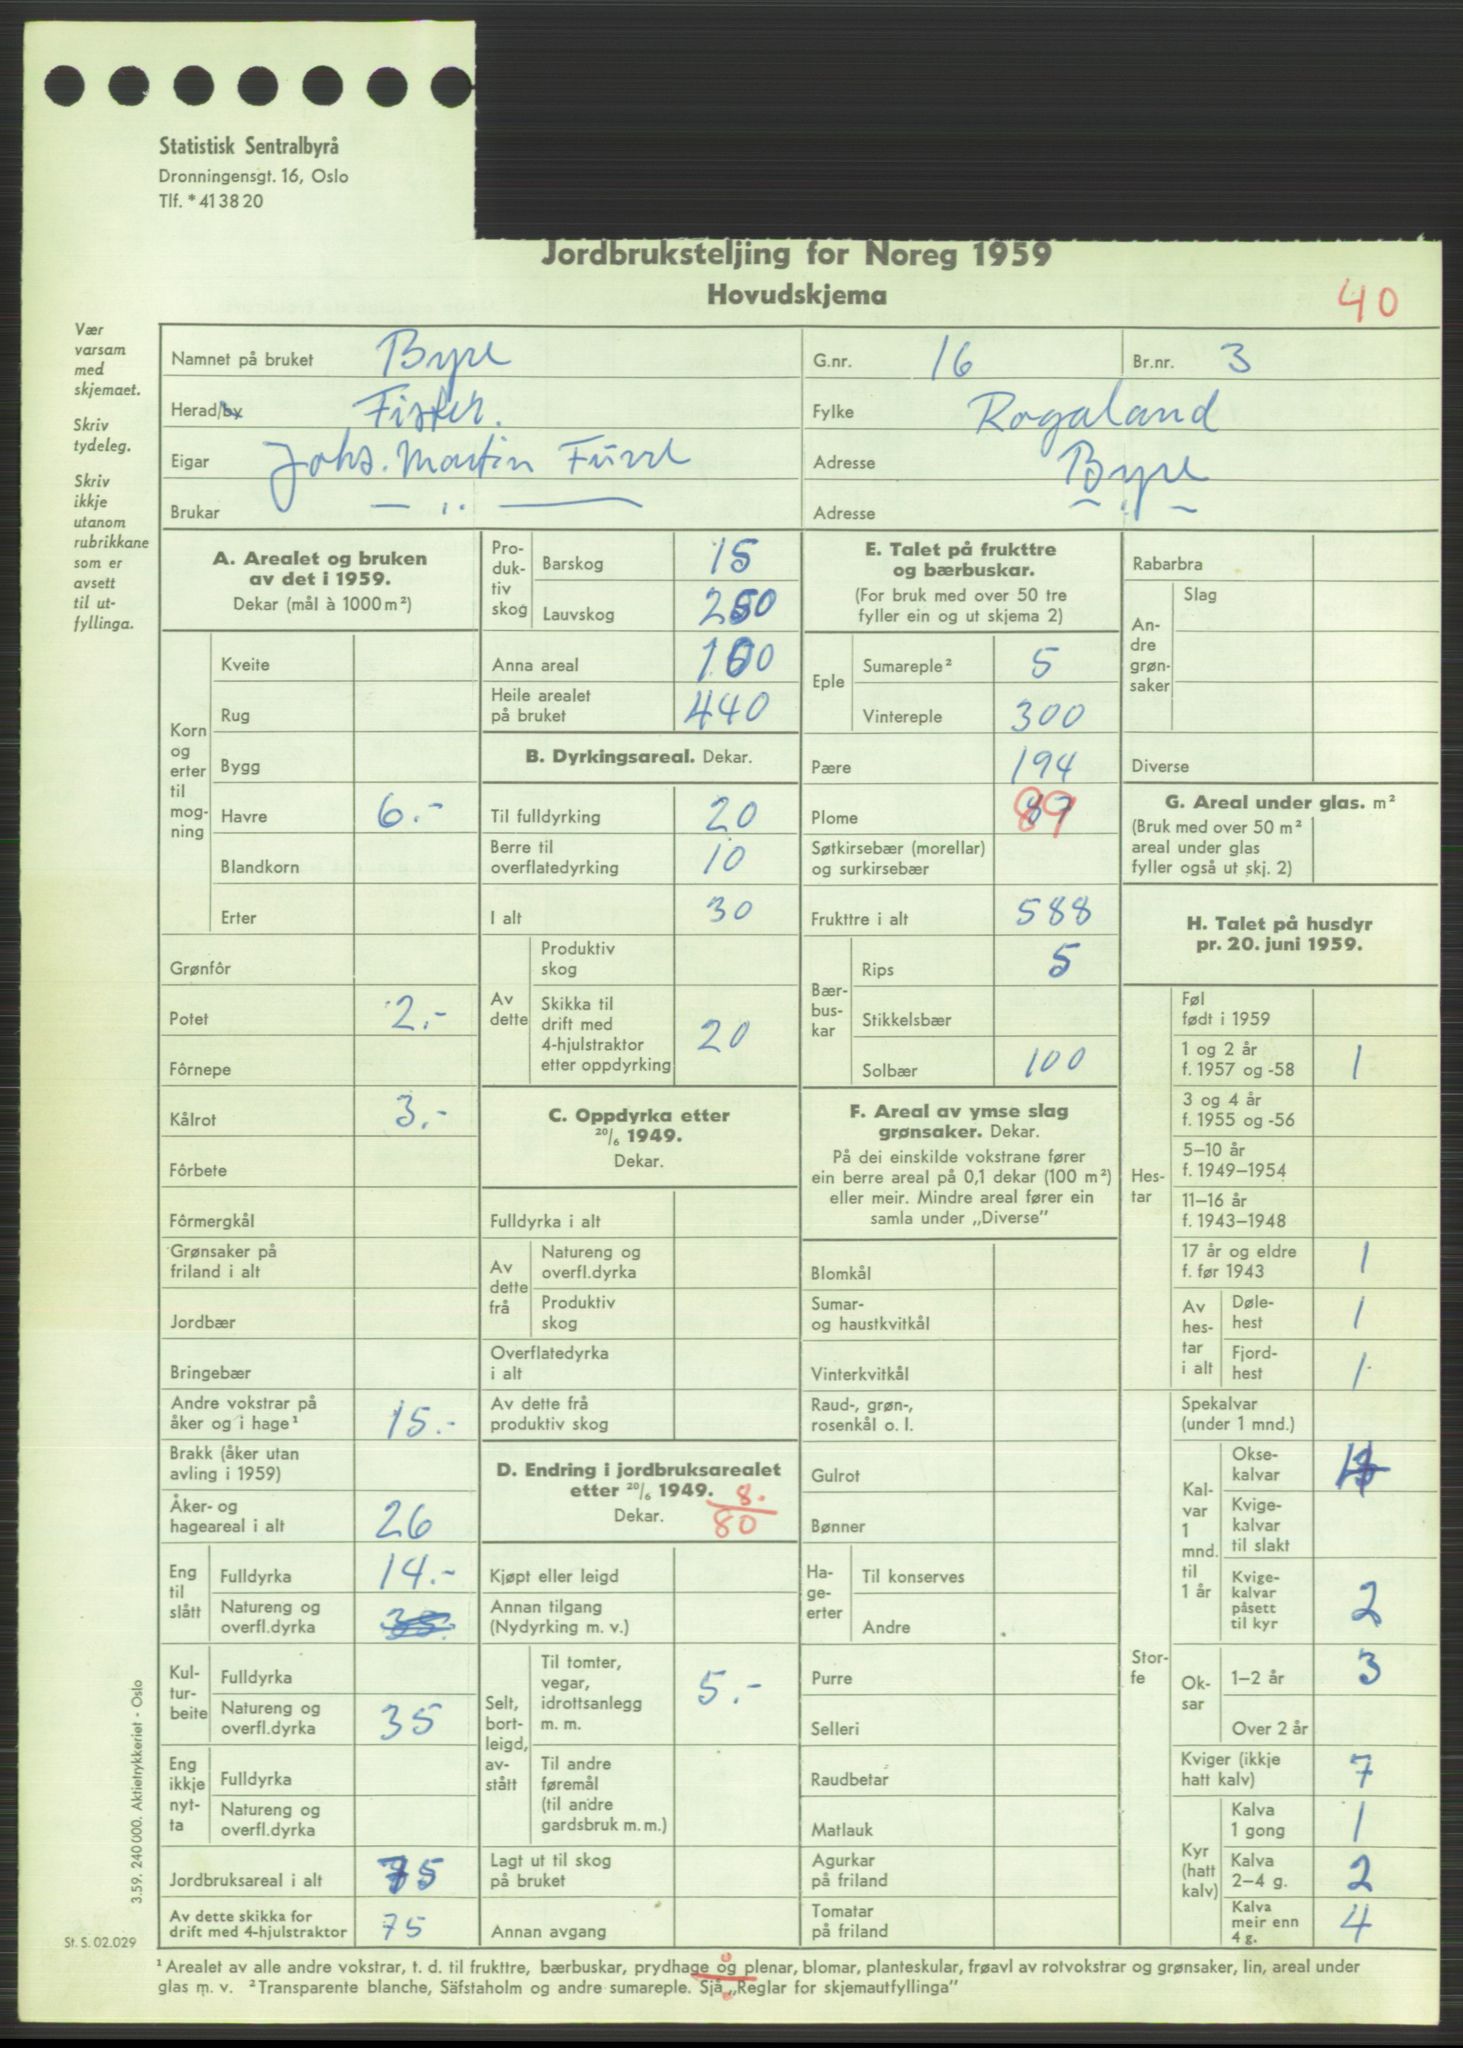 Statistisk Sentralbyrå
Dronningensgt. 16, Oslo
Tlf. * 41 38 20
Jordbruksteljing for Noreg 1959
Hovudskjema
40
Vær
varsam
med
skjemaet.
Skriv
tydeleg.
Skriv
ikkje
utanom
rubrikkane
som er
avsett
til ut-
fyllinga.
Namnet på bruket Byre G.nr. 16 Br.nr. 3
Herad/by Fister. Fylke Rogaland
Eigar Johs. Martin Adresse Byre
Brukar — „ — Adresse — „ —
A. Arealet og bruken
av det i 1959.
Dekar (mål à 1000 m²)
Korn og erter til mog-ning
Kveite
Rug
Bygg
Havre 6.-
Blandkorn
Erter
Grønfôr
Potet 2.-
Fôrnepe
Kålrot 3.-
Fôrbete
Fôrmergkål
Grønsaker på
friland i alt
Jordbær
Bringebær
Andre vokstrar på
åker og i hage¹ 15.-
Brakk (åker utan
avling i 1959)
Åker- og
hageareal i alt 26
Eng til slått
Fulldyrka 14.-
Natureng og
overfl.dyrka
Kul-tur-beite
Fulldyrka
Natureng og
overfl.dyrka 35
Eng ikkje nyt-ta
Fulldyrka
Natureng og
overfl.dyrka
Jordbruksareal i alt 75
Av dette skikka for
drift med 4-hjulstraktor 75
Pro-duk-tiv skog
Barskog 15
Lauvskog 250
Anna areal 100
Heile arealet
på bruket 440
B. Dyrkingsareal. Dekar.
Til fulldyrking 20
Berre til
overflatedyrking 10
I alt 30
Av dette
Produktiv
skog
Skikka til
drift med
4-hjulstraktor
etter oppdyrking 20
C. Oppdyrka etter
20/6 1949.
Dekar.
Fulldyrka i alt
Av dette frå
Natureng og
overfl.dyrka
Produktiv
skog
Overflatedyrka
i alt
Av dette frå
produktiv skog
D. Endring i jordbruksarealet
etter 20/6 1949.
Dekar.
8.
80
Kjøpt eller leigd
Annan tilgang
(Nydyrking m. v.)
Selt, bort-leigd, av-stått
Til tomter,
vegar,
idrottsanlegg
m. m. 5.-
Til andre
føremål
(til andre
gardsbruk m. m.)
Lagt ut til skog
på bruket
Annan avgang
E. Talet på frukttre
og bærbuskar.
(For bruk med over 50 tre
fyller ein og ut skjema 2)
Eple
Sumareple² 5
Vintereple 300
Pære 194
Plome 89
Søtkirsebær (morellar)
og surkirsebær
Frukttre i alt 588
Bær-bus-kar
Rips 5
Stikkelsbær
Solbær 100
F. Areal av ymse slag
grønsaker. Dekar.
På dei einskilde vokstrane fører
ein berre areal på 0,1 dekar (100 m²)
eller meir. Mindre areal fører ein
samla under „Diverse”
Blomkål
Sumar-
og haustkvitkål
Vinterkvitkål
Raud-, grøn-,
rosenkål o. l.
Gulrot
Bønner
Ha-ge-erter
Til konserves
Andre
Purre
Selleri
Raudbetar
Matlauk
Agurkar
på friland
Tomatar
på friland
Rabarbra
An-dre grøn-saker
Slag
Diverse
G. Areal under glas. m²
(Bruk med over 50 m²
areal under glas
fyller også ut skj. 2)
H. Talet på husdyr
pr. 20. juni 1959.
Hes-tar
Føl
født i 1959
1 og 2 år
f. 1957 og -58 1
3 og 4 år
f. 1955 og -56
5–10 år
f. 1949–1954
11–16 år
f. 1943–1948
17 år og eldre
f. før 1943 1
Av hes-tar i alt
Døle-
hest 1
Fjord-
hest 1
Stor-fe
Spekalvar
(under 1 mnd.)
Kal-var 1 mnd. til 1 år
Okse-
kalvar
Kvige-
kalvar
til slakt
Kvige-
kalvar
påsett
til kyr 2
Ok-sar
1–2 år 3
Over 2 år
Kviger (ikkje
hatt kalv) 7
Kyr (hatt kalv)
Kalva
1 gong 1
Kalva
2–4 g. 2
Kalva
meir enn
4 g. 4
3.59. 240 000. Aktietrykkeriet - Oslo
St. S. 02.029
¹ Arealet av alle andre vokstrar, t. d. til frukttre, bærbuskar, prydhage og plenar, blomar, planteskular, frøavl av rotvokstrar og grønsaker, lin, areal under
glas m. v. ² Transparente blanche, Säfstaholm og andre sumareple. Sjå „Reglar for skjemautfyllinga”